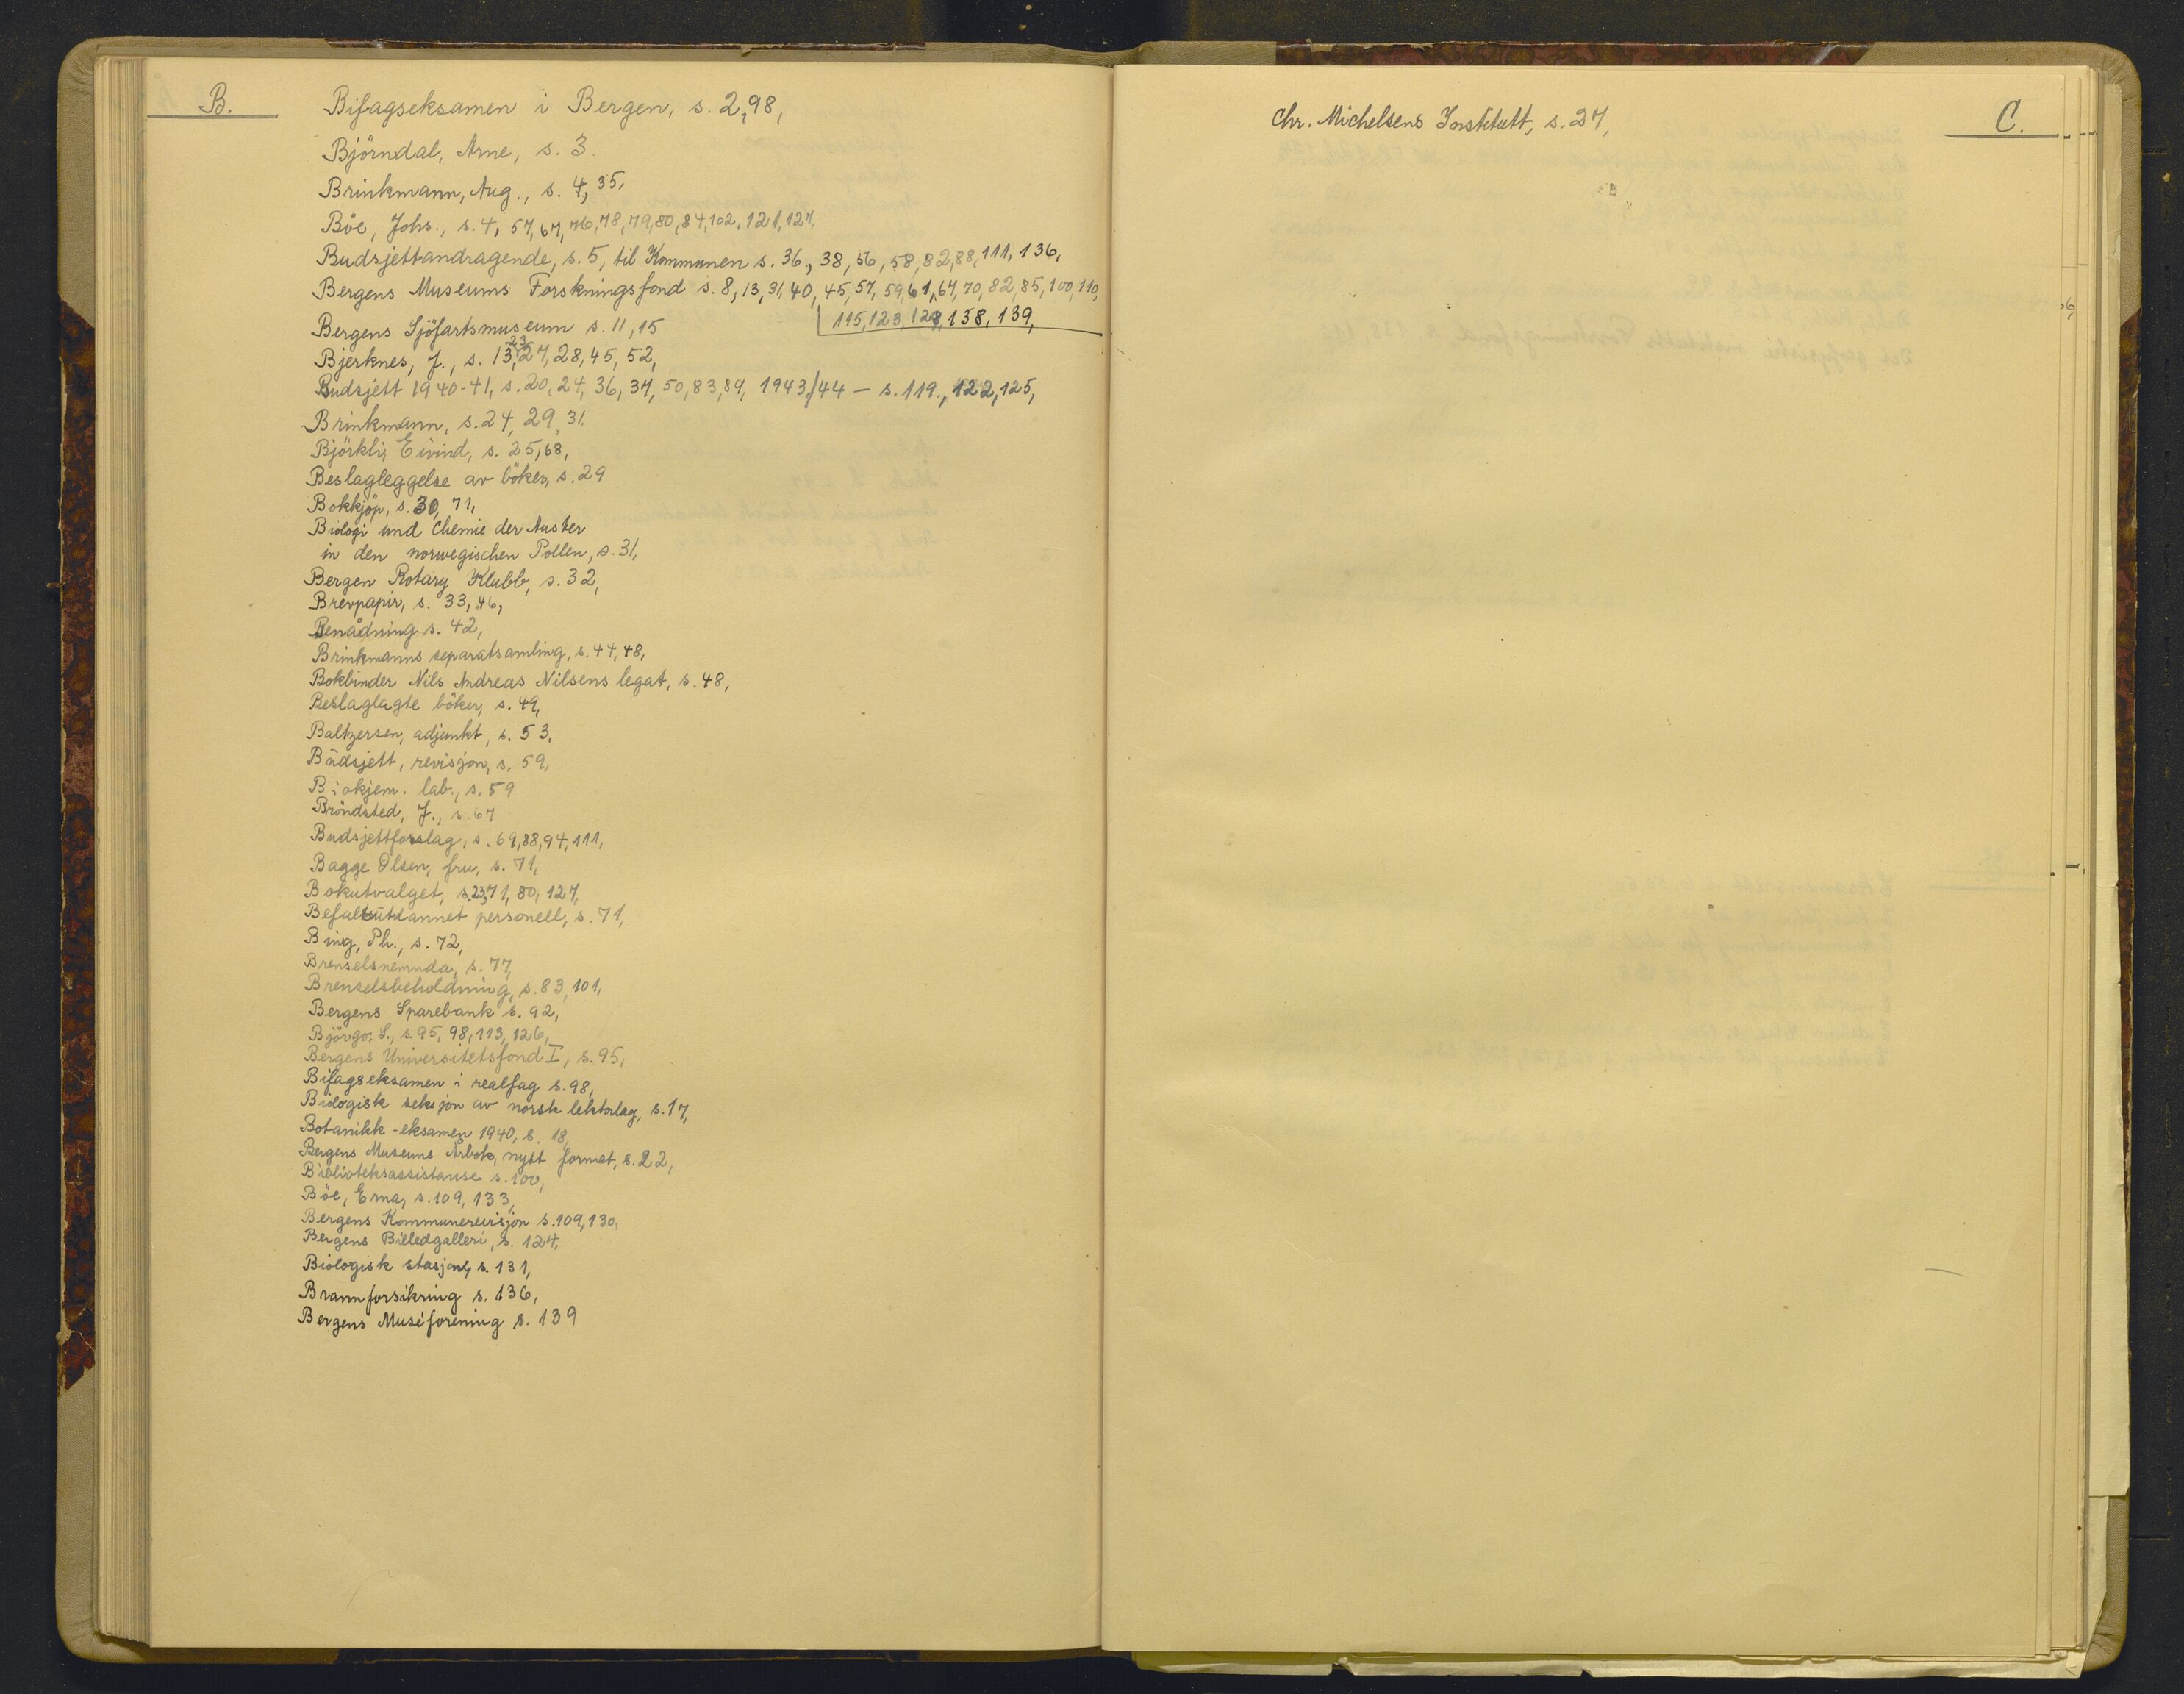 B.
Bifagseksamen i Bergen, s. 2, 98,
Björndal, Arne, s. 3.
Brinkmann, Aug., s. 4, 35,
Böe, Johs., s. 4, 57, 67, 76, 78, 79, 80, 84, 102, 121, 127,
Budsjettandragende, s. 5, til Kommunen s. 36, 38, 56, 58, 82, 88, 111, 136,
Bergens Museums Forskningsfond s. 8, 13, 31, 40, 45, 57, 59, 61, 67, 70, 82, 85, 100, 110,
115, 123, 128, 138, 139,
Bergens Sjöfartsmuseum s. 11, 15
Bjerknes, J., s. 13, 23, 27, 28, 45, 52,
Budsjett 1940-41, s. 20, 24, 36, 37, 50, 83, 89, 1943/44 - s. 119., 122, 125,
Brinkmann, s. 24, 29, 31.
Björkli, Eivind, s. 25, 68,
Beslagleggelse av böker, s. 29
Bokkjöp, s. 30, 71,
Biologi und Chemie der Auster
in den norwegischen Pollen, s. 31,
Bergen Rotary Klubb, s. 32,
Brevpapir, s. 33, 46,
Benådning s. 42,
Brinkmanns separatsamling, s. 44, 48,
Bokbinder Nils Andreas Nilsens legat, s. 48,
Beslaglagte böker, s. 49,
Baltzersen, adjunkt, s. 53.
Budsjett, revisjon, s. 59,
Biokjem. lab., s. 59
Bröndsted, J., s. 67
Budsjettforslag, s. 69, 88, 94, 111,
Bagge Olsen, fru, s. 71,
Bokutvalget, s. 23, 71, 80, 127,
Befalsutdannet personell, s. 71,
Bing, Ph., s. 72,
Brenselsnemnda, s. 77,
Brenselsbeholdning, s. 83, 101,
Bergens Sparebank s. 92,
Bjövgo, L., s. 95, 98, 113, 126,
Bergens Universitetsfond I, s. 95,
Bifagseksamen i realfag s. 98,
Biologisk seksjon av norsk lektorlag, s. 17,
Botanikk-eksamen 1940, s. 18,
Bergens Museums Årbok, nytt format, s. 22,
Biblioteksassistanse s. 100,
Böe, Erna, s. 109, 133,
Bergens Kommunerevisjon s. 109, 130,
Bergens Billedgalleri, s. 124,
Biologisk stasjon, s. 131,
Brannforsikring s. 136,
Bergens Muséforening s. 139
Chr. Michelsens Institutt, s. 27,
C.